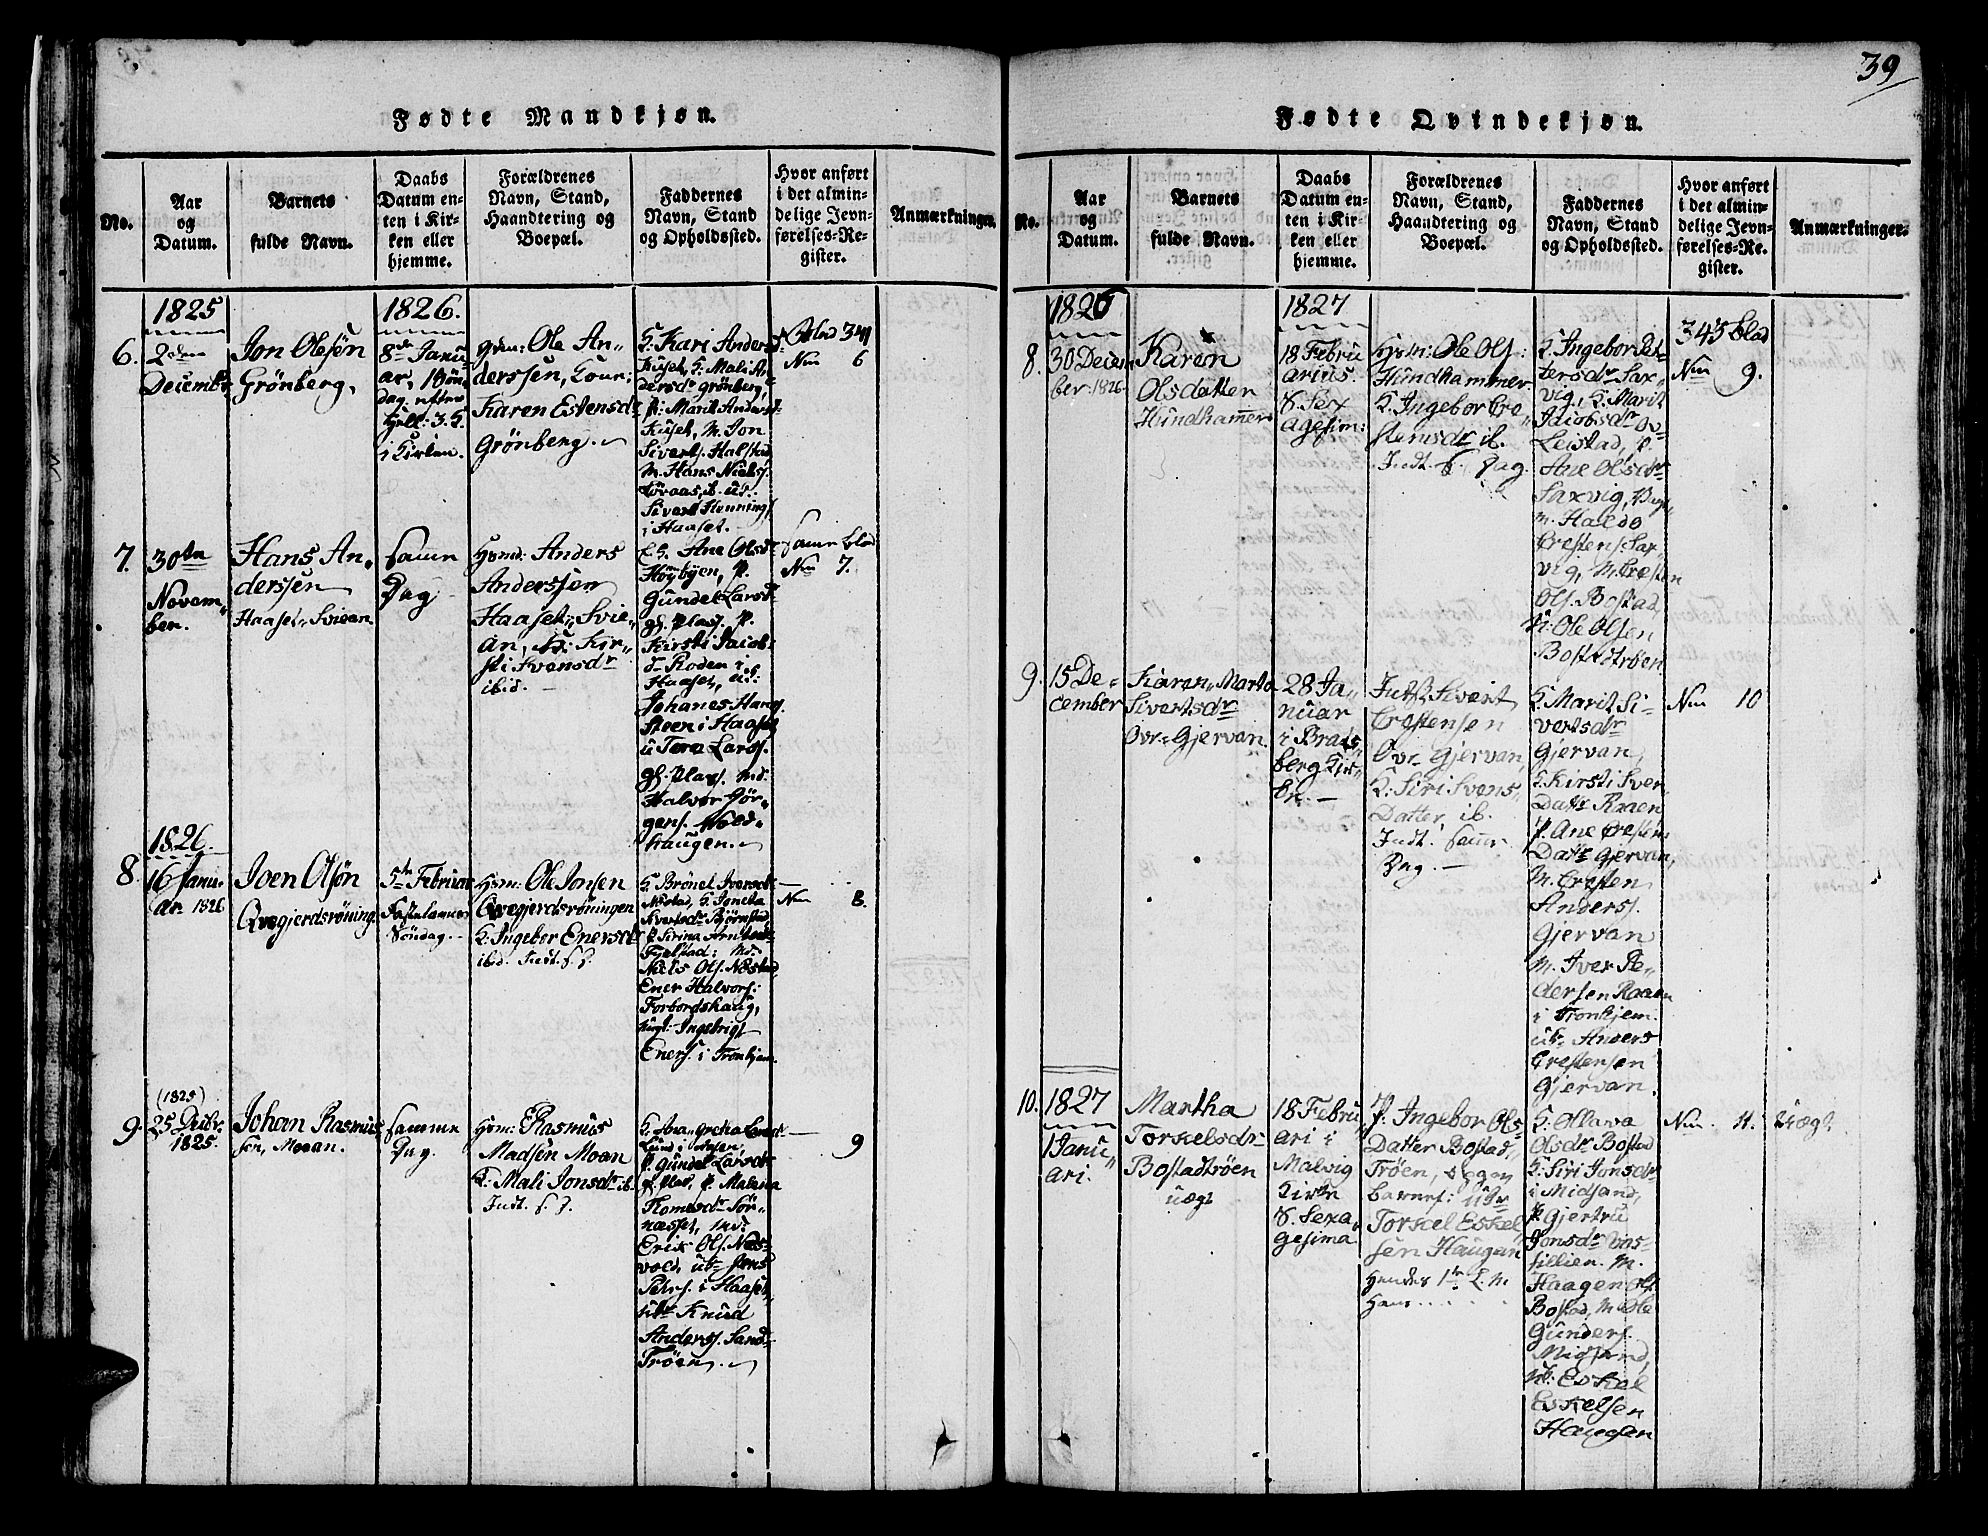 39
Fødte Mandkjøn.
No.
Aar
og
Datum.
Barnets
fulde Navn.
Daabs
Datum en-
ten i Kir-
ken eller
hjemme.
Forældrenes
Navn, Stand,
Haandtering og
Boepæl.
Faddernes
Navn, Stand
og Opholdssted.
Hvor anført
i det almin-
delige Jevn-
førelses-Re-
gister.
Anmærkninger.
1825
6.
2den
Decembr.
Jon Olesön
Grönberg,
1826.
8de Janu-
ar, 1 Sön
dag efter
i Kirken.
Ole An-
derssen,
Karen Estensdr
Grönberg.
Kari Anders
Mali A-
dersdr Grönberg,
Marit Anders
M. Jon
Siverts. Halstad
M. Hans Niels.
Sivert Henning
i Haaset.
Blad 344
Num 6
7.
30te
Novem-
ber.
Hans An-
derssen
Haaset, Svien
Samme
Dag
Anders
Anderssen
Haaset, Svie-
an, K: Kir-
sti Svensdr
ibid.
Ane Olsdr
Höybyen, P.
Gundel Larsd
Kirsti Jacob
Roden i
Haaset,
Johanes Hans
steen i Haaset
u Tore Lars.
Halvor Jör-
gens. Wold-
haugen.
Samme blad
Num 7.
1826.
8
16 Janu-
ar 1826
Joen Olsön
Qvegjerdsröning
5te Februar
Fastelauns
Söndag.
Ole Jonsen
Qvegjerdsröningen
K: Ingebor Enersdr
ibid. Indt. s. d.
Brönel Iversdr
Björnstad
P Sirina Arntsdr
Fjelstad: M:
Niels Ols. Næstad
Ener Halvors:
Forbordshaug,
Ingebrigt
Eners. i Tronhjem.
Num 8.
9
(1825)
25 Decbr.
1825.
Johan Rasmus
sen, Moaan.
Samme
Dag.
Rasmus
Madsen Moan
K: Mali Jonsdr ib.
Indt. s. d.
P. Gundel Larsdr
P. Malena
Thomesdr Sör-
næsset, M:
Erik Ols. Næs-
vold, ut Jens
Peters. i Haaset
Knud
Anders. Sand-
Tröen.
9
Fødte Qvindekjøn.
No.
Aar
og
Datum.
Barnets
fulde Navn.
Daabs
Datum en-
ten i Kir-
ken eller
hjemme.
Forældrenes
Navn, Stand,
Haandtering og
Boepæl.
Faddernes
Navn, Stand
og Opholdssted.
Hvor anført
i det almin-
delige Jevn-
førelses-Re-
gister.
Anmærkninger.
1826
8.
30 Decem
ber 1826
Karen
Olsdatter
Hundhammer
1827
18 Febru
arius.
S. Sex
agesim:
Ole Ols:
Hundhammer
K. Ingebor Cre-
stensdr ib.
Indt. s. Dag.
K. Ingebor Pet-
tersdr Sax-
vig, K. Marit
Jacobsdr Ov-
Leistad, P.
Ane Olsdr
Saxvig,
M. Haldo
Crestens. Sax-
vig, M. Cresten
Ols. Bostad,
Ole Olsen
Bostadtröen
345 blad
Num 9.
9.
15 De-
cember
Karen Marta
Sivertsdr
Ovr-Gjervan.
28 Ja-
nuar
i Brads-
berg Kir-
ke.
Indst. Sivert
Crestensen
Ovr Gjervan,
K. Siri Svens
Datter, ib.
Indt. Samme
Dag.
K. Marit Si-
vertsdr
Gjervan,
K. Kirsti Sver
Datr Raaen
P. Ane Crestens
Datr Gjervan,
M. Cresten
Anders.
Gjervan
M. Iver Pe-
dersen Raaen
i Tronhjem.
utr Anders
Crestensen
Gjervan.
Num 10
10.
1827
1 Janu-
ari.
Martha
Torkelsdr
Bostadtröen
uægt
18 Febru
ari i
Malvig
Kirke
S. Sexa-
gesima
P. Ingebor Ols-
Datter Bostad-
Tröen,
Torkel Eskel
sen Haugan
Hendes 1te L. M.
Hans . . . .
K. Ollava
Olsdr Bostad
K: Siri Jonsdr
i Midsand,
P. Gjertru
Jonsdr Vas-
sillien. M.
Haagen Ols.
Bostad, M Ole
Gunders.
Midsand,
Eskel
Eskelsen
Haugan
Num. 11.
Uægt.